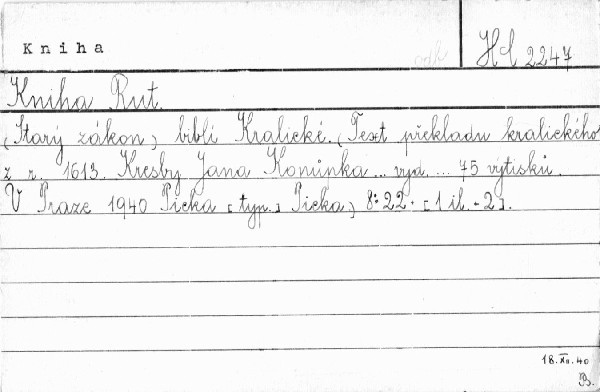 Kniha
Hd 2247
Kniha Rut.
(Starý zákon) bibli Kralické. (Text překladu kralického
z r. 1613. Kresby Jana Konůpka ... vyd. ... 75 výtisků.
V Praze 1940 Picka [typ.] Picka) 8: 22 + [1 il. + 2].
18.XII.40
B.